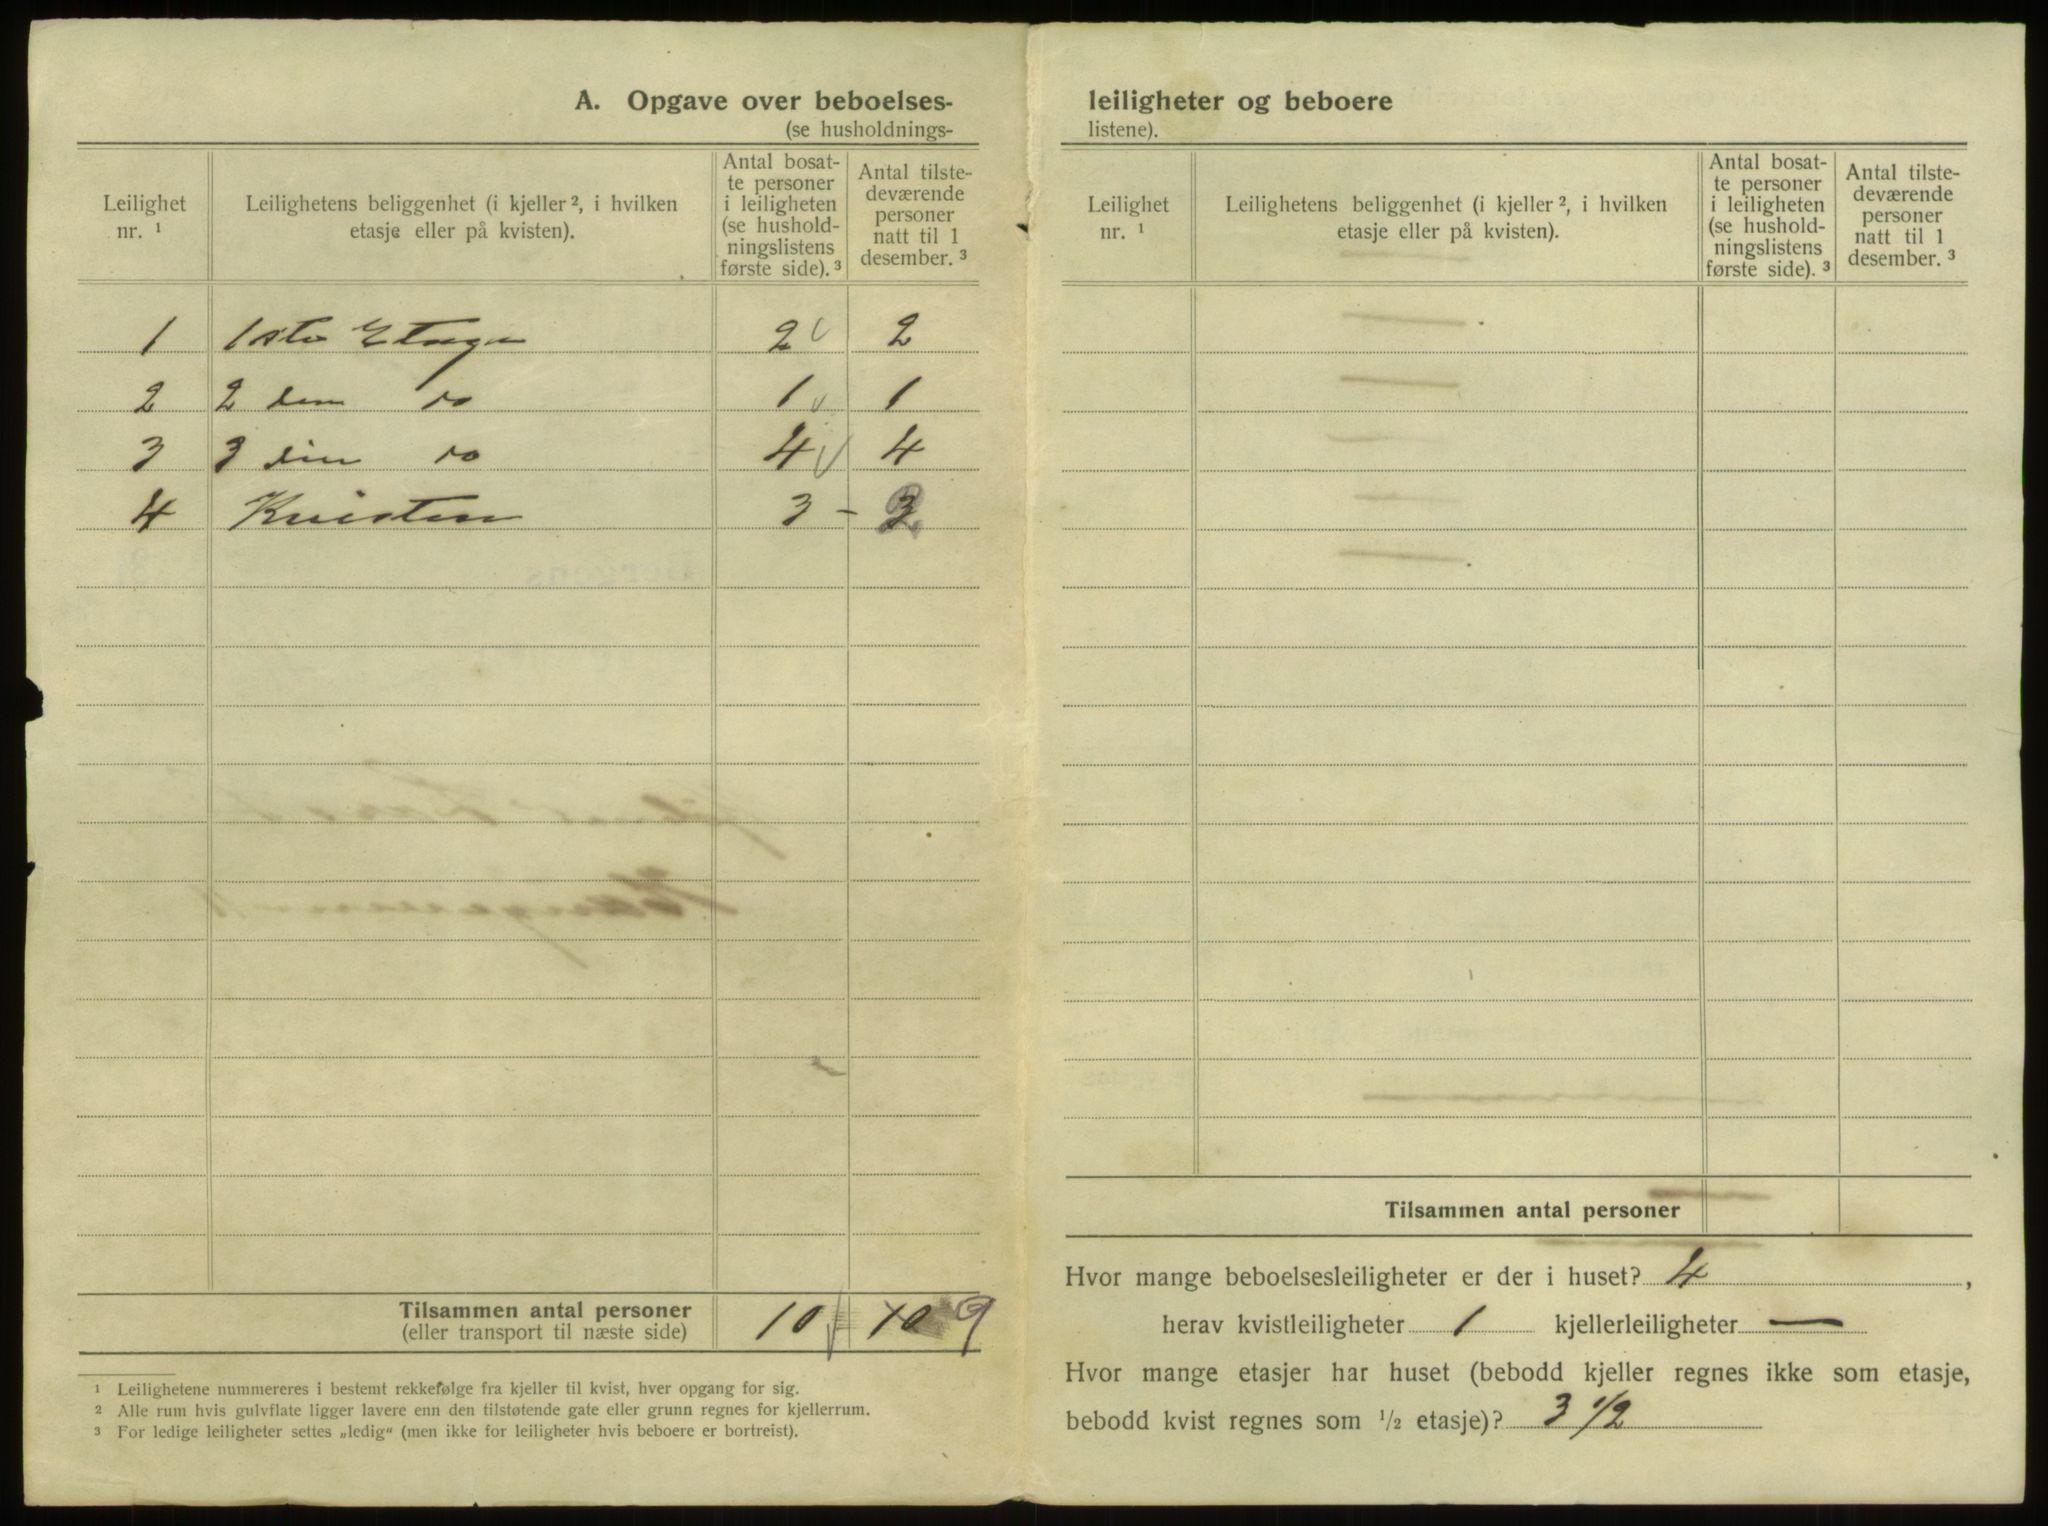 A. Opgave over beboelses-
(se husholdnings-
Leilighet nr. ¹
Leilighetens beliggenhet (i kjeller ², i hvilken etasje eller på kvisten).
Antal bosat-
te personer
i leiligheten
(se hushold-
ningslistens
første side). ³
Antal tilste-
deværende
personer
natt til 1
desember. ³
1 1ste Etage 2 2
2 2den do 1 1
3 3den do 4 4
4 Kvisten 3 - 3 2
Tilsammen antal personer 10 10 9
(eller transport til næste side)
¹ Leilighetene nummereres i bestemt rekkefølge fra kjeller til kvist, hver opgang for sig.
² Alle rum hvis gulvflate ligger lavere enn den tilstøtende gate eller grunn regnes for kjellerrum.
³ For ledige leiligheter settes „ledig“ (men ikke for leiligheter hvis beboere er bortreist).
leiligheter og beboere
listene).
Leilighet nr. ¹
Leilighetens beliggenhet (i kjeller ², i hvilken etasje eller på kvisten).
Antal bosat-
te personer
i leiligheten
(se hushold-
ningslistens
første side). ³
Antal tilste-
deværende
personer
natt til 1
desember. ³
Tilsammen antal personer
Hvor mange beboelsesleiligheter er der i huset? 4 ,
herav kvistleiligheter 1 kjellerleiligheter —
Hvor mange etasjer har huset (bebodd kjeller regnes ikke som etasje,
bebodd kvist regnes som ½ etasje)? 3 ½